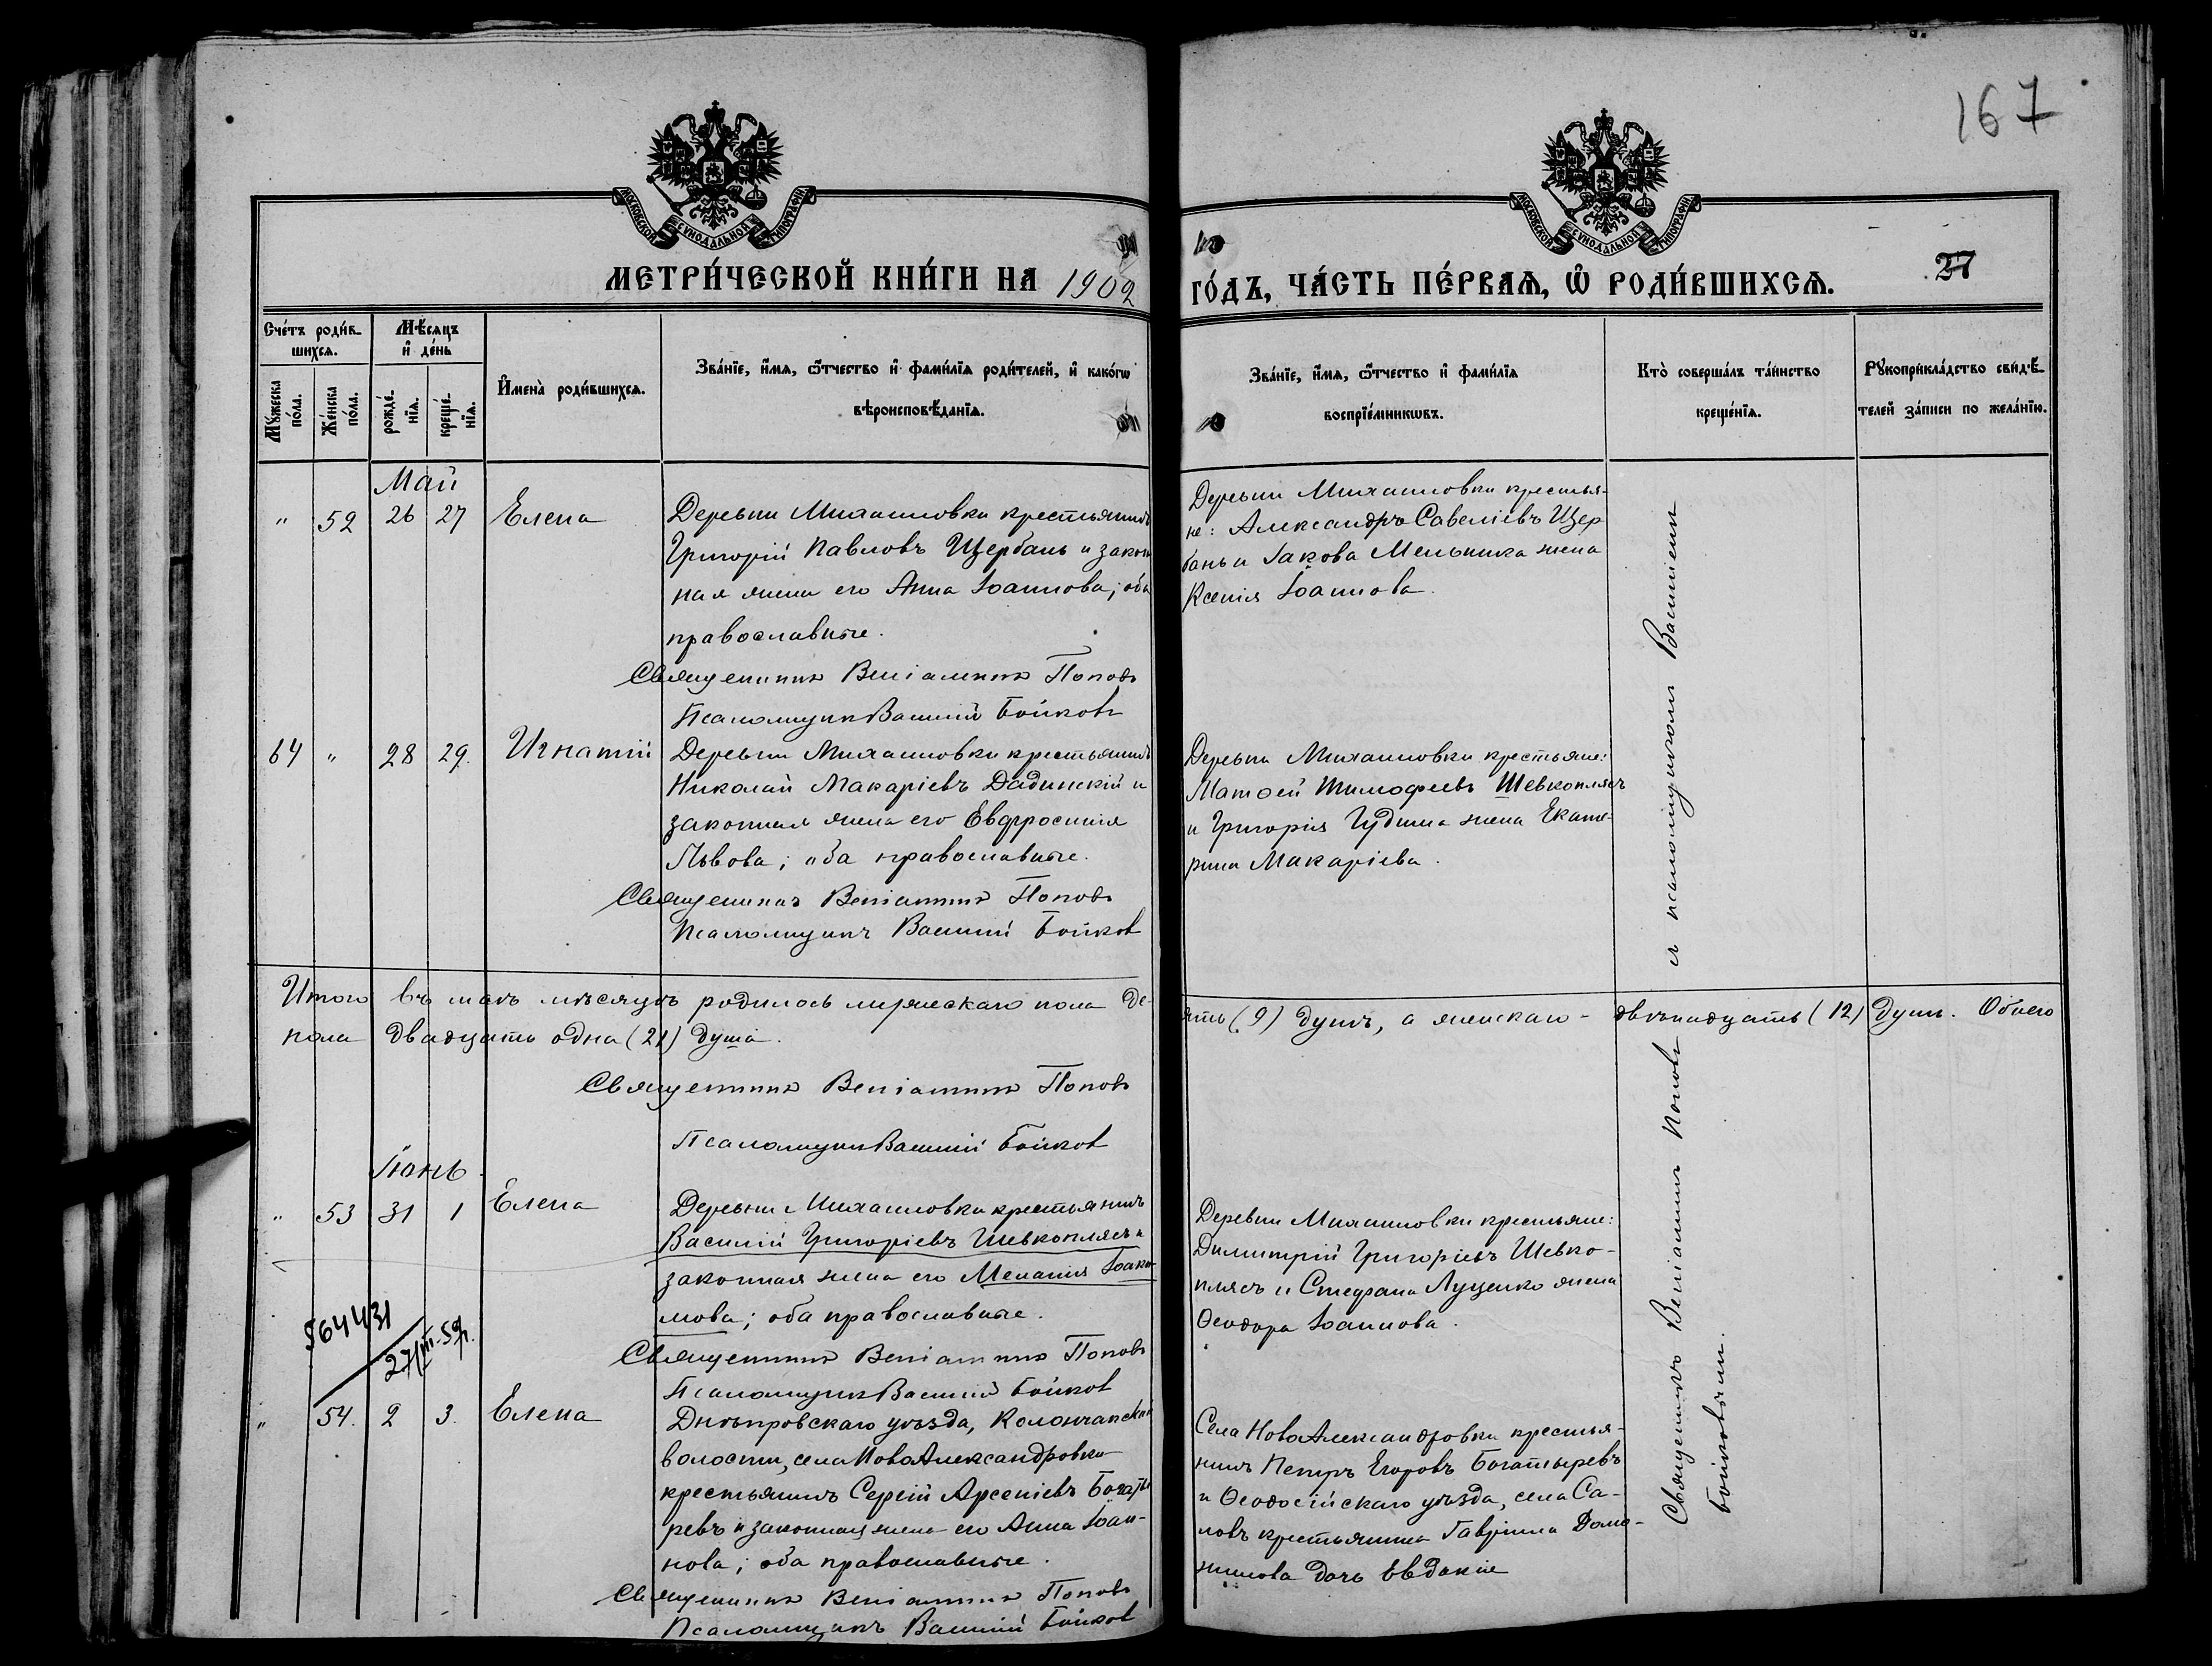 167
МОСКОВСКОЙ СУНОДАЛЬНОЙ ТИПОГРАФІИ
МОСКОВСКОЙ СУНОДАЛЬНОЙ ТИПОГРАФІИ
МЕТРИ́ЧЕСКОЙ КНИ́ГИ НА 1902
ГО́ДЪ, ЧА́СТЬ ПЕ́РВАѦ, Ѡ҆ РОДИ́ВШИХСѦ.
27
Сче́тъ роди́в-
шихсѧ.
Мꙋ́жеска по́ла.
Же́нска по́ла.
Мѣ́сяцъ
и҆ де́нь
рожде́-
нїѧ.
креще́-
нїѧ.
И҆мена̀ роди́вшихсѧ.
Зва́нїе, и҆́мѧ, ѻ҆́тчество и҆ фами́лїѧ роди́телей, и҆ како́гѡ
вѣроисповѣ́данїѧ.
Зва́нїе, и҆́мѧ, ѻ҆́тчество и҆ фами́лїѧ
воспрїе́мникѡвъ.
Кто̀ соверша́лъ та́инство
креще́нїѧ.
Рꙋкоприкла́дство свидѣ́-
телей за́писи по жела́нїю.
Май
" 52 26 27 Елена
Деревни Михаиловки крестьянинъ
Григорій Павловъ Щербань и закон
ная жена его Анна Іоаннова; оба
православные.
Священникъ Веніаминъ Поповъ
Псаломщикъ Василій Бойковъ
Деревни Михаиловки крестья-
не: Александръ Савеліевъ Щер-
бань и Іакова Мельника жена
Ксенія Іоаннова.
64 " 28 29. Игнатій
Деревни Михаиловки крестьянинъ
Николай Макаріевъ Дадинскій и
законная жена его Евфросинія
Львова; оба православные.
Священникъ Веніаминъ Поповъ
Псаломщикъ Василій Бойков
Деревни Михаиловки крестьяне:
Матѳей Тимофеевъ Шевкоплясъ
и Григорія Гудима жена Екате-
рина Макаріева.
Итого въ маѣ мѣсяцѣ родилось мужескаго пола де-
вять (9) душъ, а женскаго - двѣнадцать (12) душъ. Обоего
пола двадцать одна (21) душа.
Священникъ Веніаминъ Поповъ
Псаломщикъ Василій Бойков
Іюнь.
" 53 31 1 Елена
Деревни Михаиловки крестьянинъ
Василій Григоріевъ Шевкоплясъ и
законная жена его Меланія Іоаки-
мова; оба православные.
Священникъ Веніаминъ Поповъ
Псаломщикъ Василій Бойков
Деревни Михаиловки крестьяне:
Димитрій Григоріевъ Шевко-
плясъ и Стефана Луценко жена
Ѳеодора Іоаннова.
564431
27/III-59г.
" 54. 2 3. Елена
Днѣпровскаго уѣзда, Колончакской
волости, села НовоАлександровки
крестьянинъ Сергій Арсеніевъ Богаты
ревъ и законная жена его Анна Іоан-
нова; оба православные.
Священникъ Веніаминъ Поповъ
Псаломщикъ Василій Бойков
Села НовоАлександровки крестья-
нинъ Петръ Егоровъ Богатыревъ
и Ѳеодосійскаго уѣзда, села Са-
ловъ крестьянина Гавріила
дочь Евдокія
Священникъ Веніаминъ Поповъ съ псаломщикомъ Василіемъ
Бойковымъ.